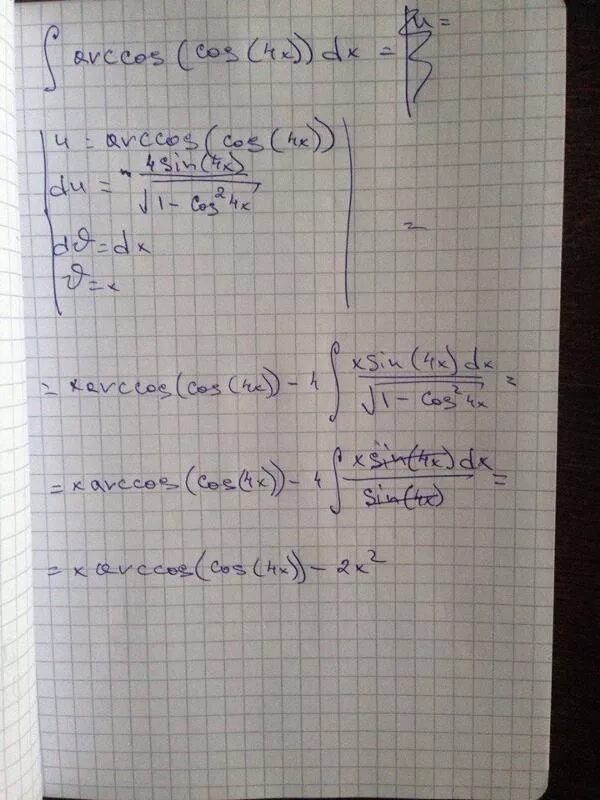 ∫ arccos(cos(4x))dx = | u =
u = arccos(cos(4x))
du = 4sin(4x) / √(1 - cos²4x)
dϑ = dx =
ϑ = x
= x arccos(cos(4x)) - 4 ∫ x sin(4x) dx / √(1 - cos²4x) =
= x arccos(cos(4x)) - 4 ∫ x sin(4x) dx / sin(4x) =
= x arccos(cos(4x)) - 2x²